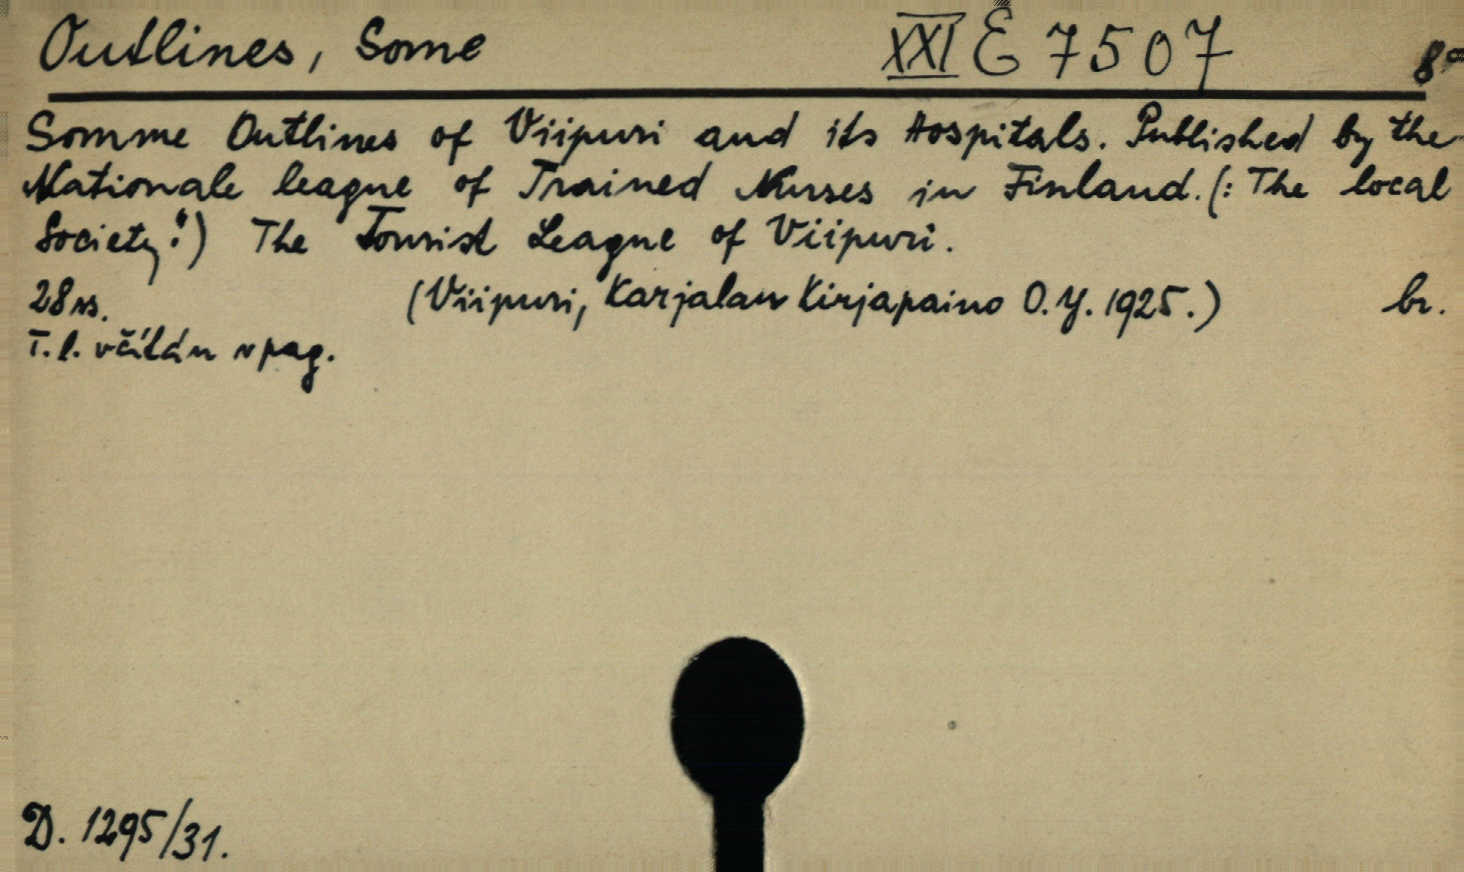 Outlines, Some XXI E 7507 8°
Somme Outlines of Viipuri and its Hospitals. Published by the
Nationale league of Trained Nurses in Finland. (: The local
Society:) The Tourist League of Viipuri.
28 ss. (Viipuri, Karjalan Kirjapaino O.Y. 1925.) br.
T. l. včítán v pag.
D. 1295/31.